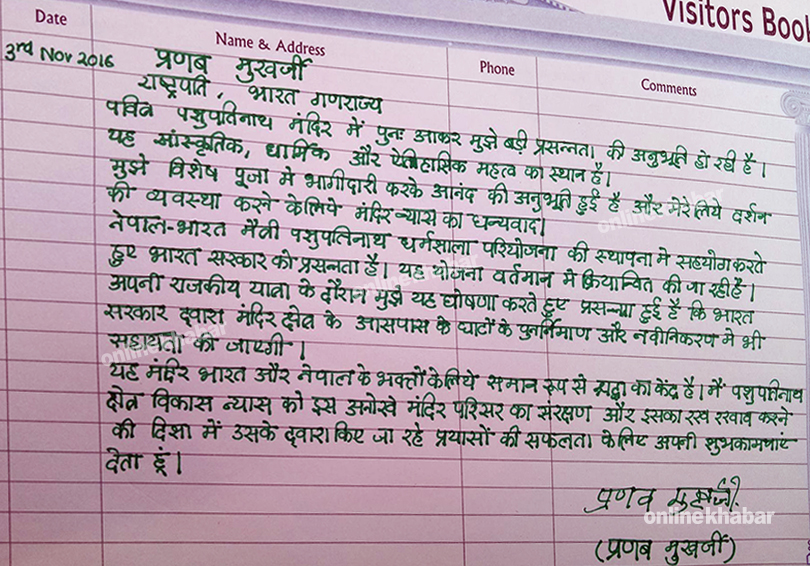 Visitors Book
Date
Name & Address
Phone
Comments
3rd Nov 2016
प्रणब मुखर्जी
राष्ट्रपति, भारत गणराज्य
पवित्र पशुपतिनाथ मंदिर में पुनः आकर मुझे बड़ी प्रसन्नता की अनुभूति हो रही है।
यह सांस्कृतिक, धार्मिक और ऐतिहासिक महत्व का स्थान है।
मुझे विशेष पूजा मे भागीदारी करके आनंद की अनुभूति हुई है और मेरे लिये दर्शन
की व्यवस्था करने के लिये मंदिर न्यास का धन्यवाद।
नेपाल-भारत मैत्री पशुपतिनाथ धर्मसाला परियोजना की स्थापना मे सहयोग करते
हुए भारत सरकार को प्रसनता है। यह योजना वर्तमान मे क्रियान्वित की जा रही है।
अपनी राजकीय यात्रा के दौरान मुझे यह घोषणा करते हुए प्रसन्नता हुई है कि भारत
सरकार द्वारा मंदिर क्षेत्र के आसपास के घाटों के पुनर्निमाण और नवीनिकरण मे भी
सहायता की जाएगी।
यह मंदिर भारत और नेपाल के भक्तों के लिये समान रूप से श्रद्धा का केंद्र है। मैं पशुपतिनाथ
क्षेत्र विकास न्यास को इस अनोखे मंदिर परिसर का संरक्षण और इसका रख रखाव करने
की दिशा में उसके द्वारा किए जा रहे प्रयासों की सफलता के लिए अपनी शुभकामनाएं
देता हूं।
प्रणव मुखर्जी
(प्रणब मुखर्जी)
onlinekhabar
onlinekhabar
onlinekhabar
onlinekhabar
onlinekhabar